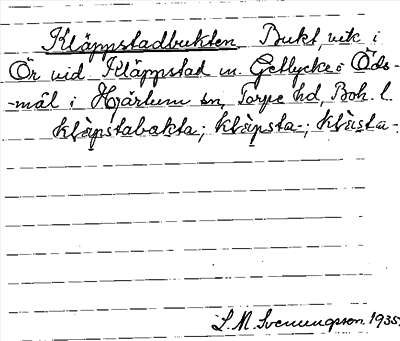 Kläppstadbukten Bukt, vik i
Ör vid Kläppstad m. Getlycke i Öds-
-mål i Hjärtum sn, Torpe hd, Boh. l.
klàpstabokta; klàpsta-; klàista-
S. M. Svenungsson 1935.